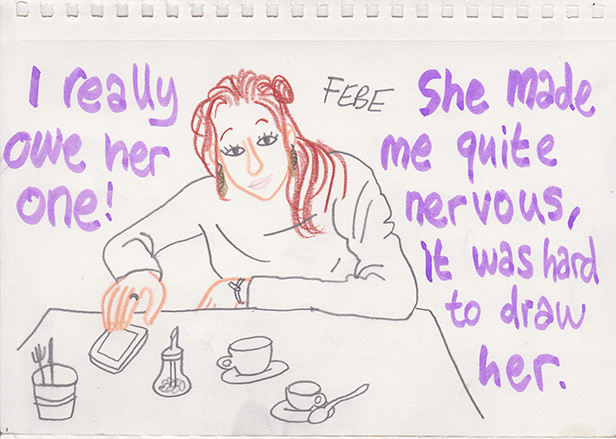 I really
owe her
one!
FEBE
She made
me quite
nervous,
it was hard
to draw
her.